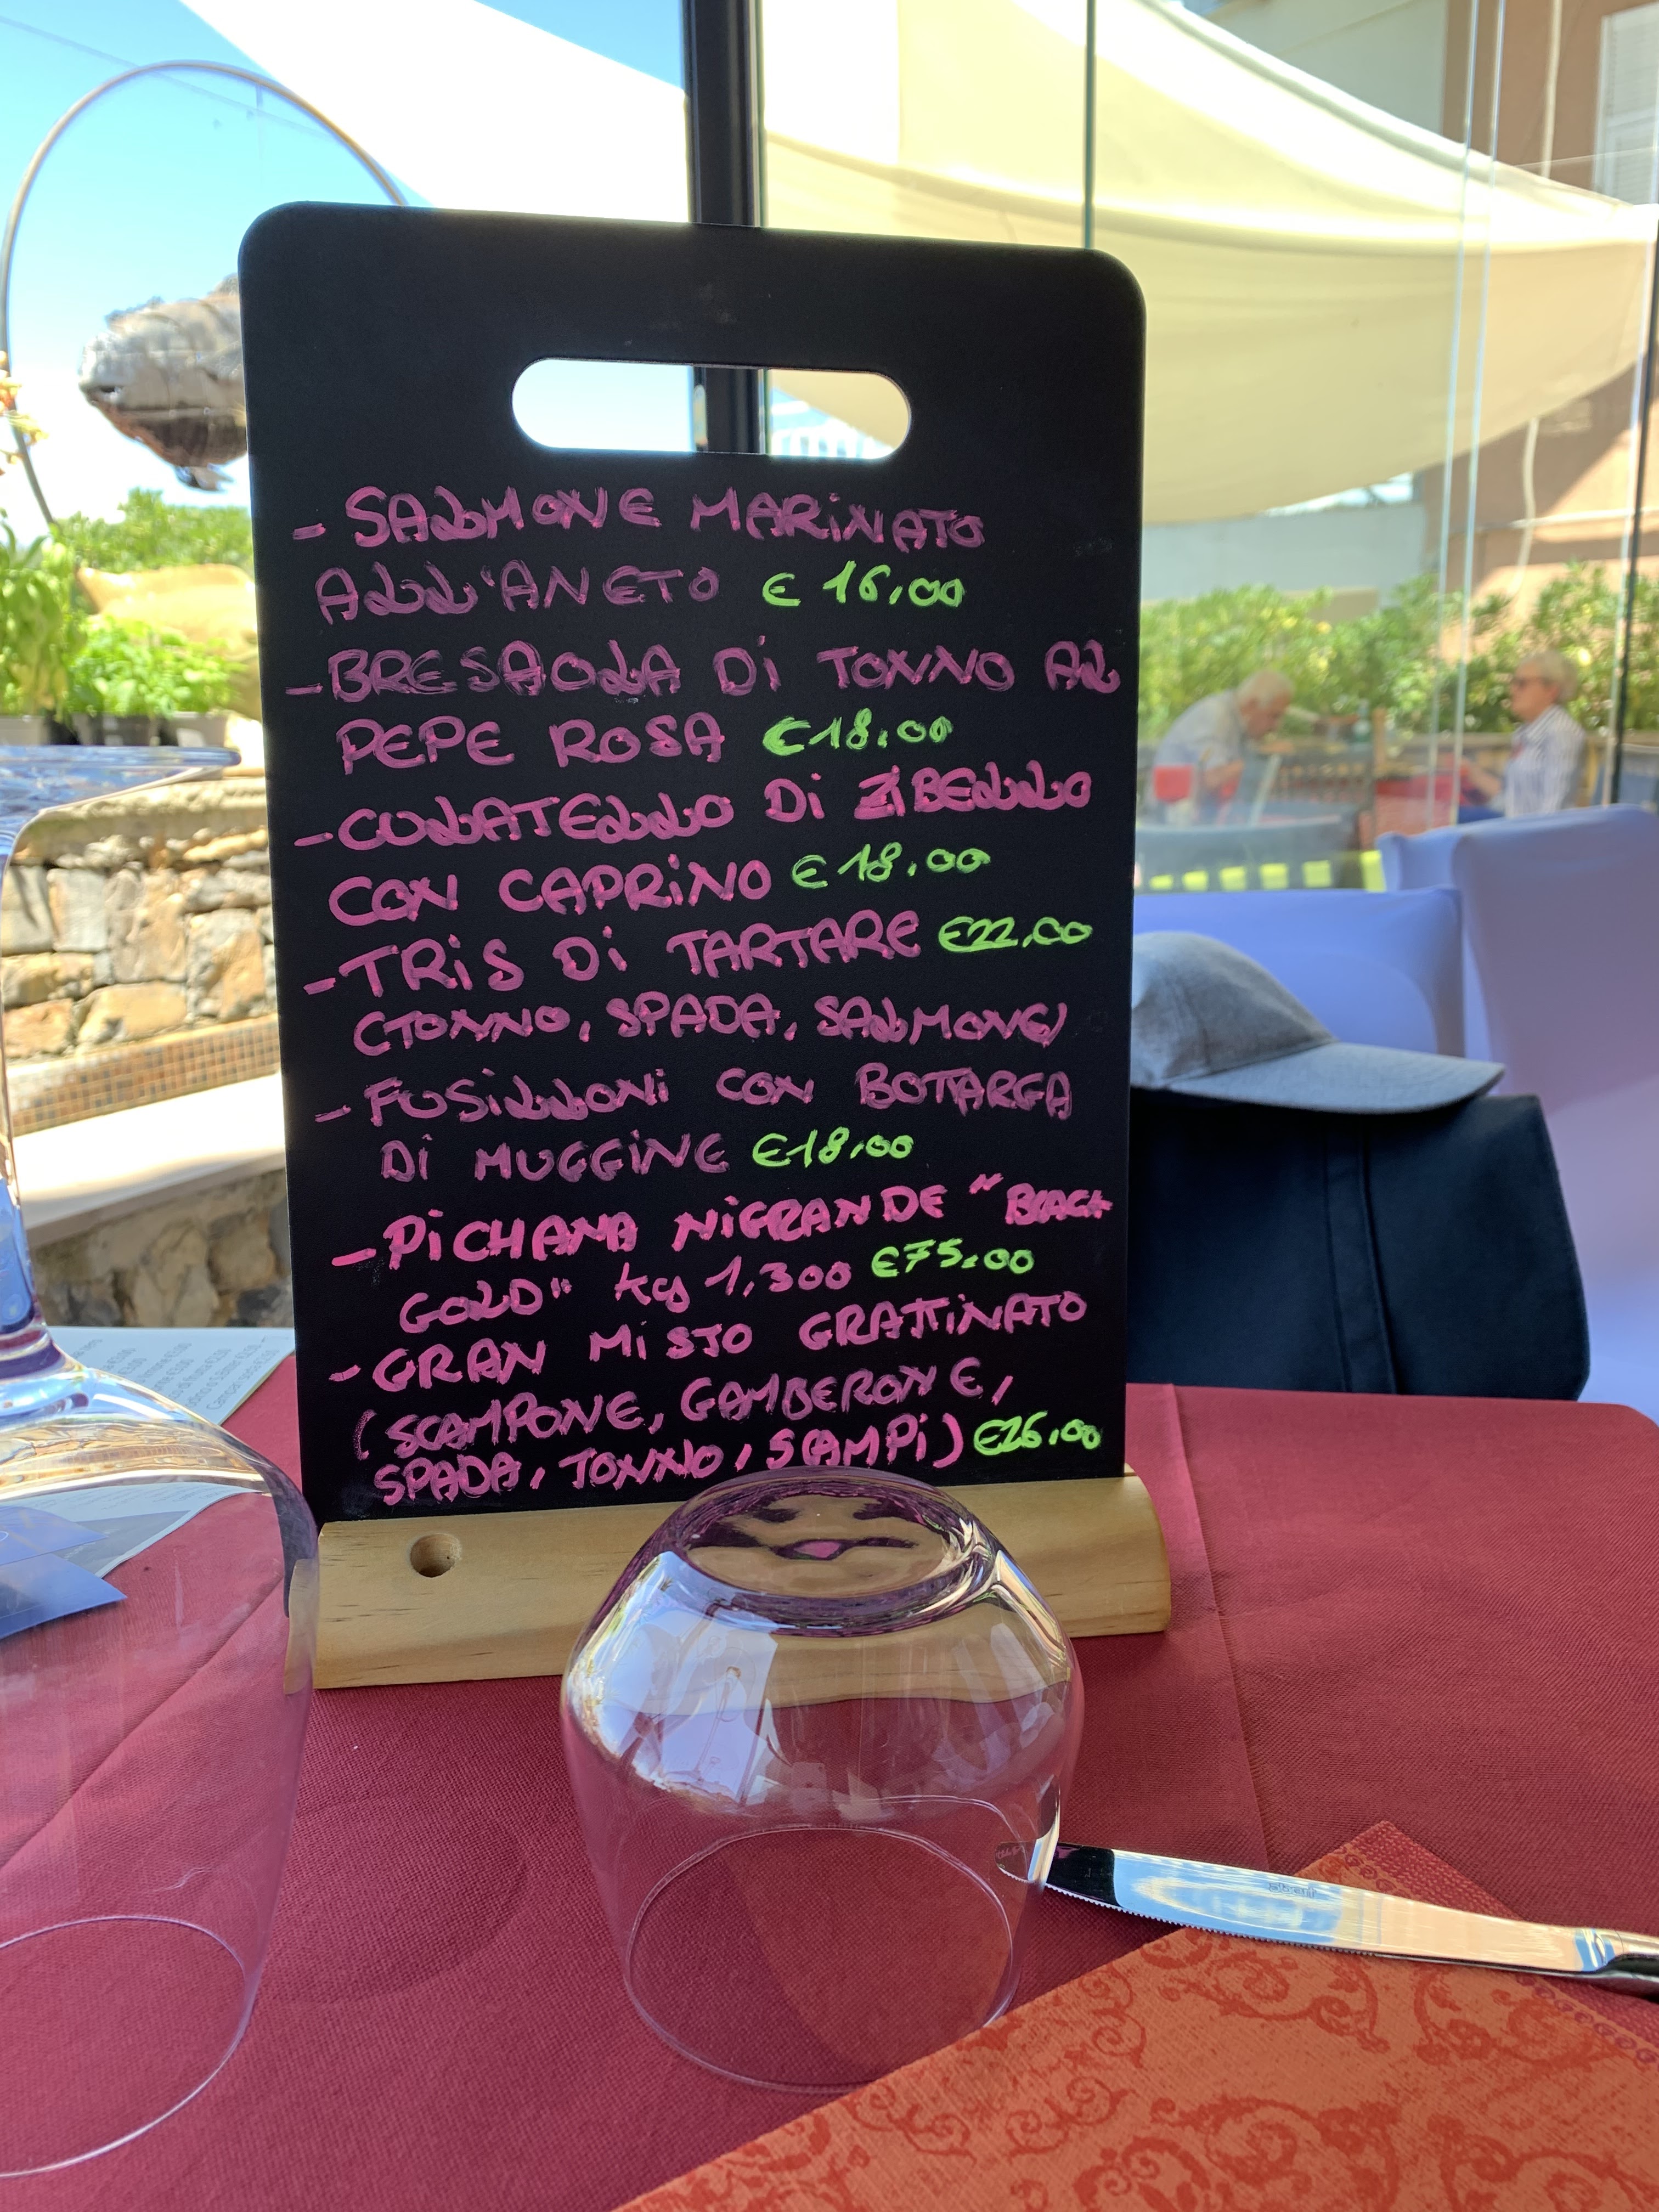 - SALMONE MARINATO
ALL'ANETO € 16,00
- BRESAOLA Di TONNO AL
PEPE ROSA €18,00
- CULATELLO Di ZIBELLO
CON CAPRINO €18,00
- TRIS Di TARTARE €22,00
(TONNO, SPADA, SALMONE)
- FUSILLONI CON BOTTARGA
Di MUGGINE €18,00
- PICHANA NIGRANDE "BLACK
GOLD" kg 1,300 €75,00
- GRAN MISTO GRATTINATO
(SCAMPONE, GAMBERONE,
SPADA, TONNO, SCAMPI) €26,00